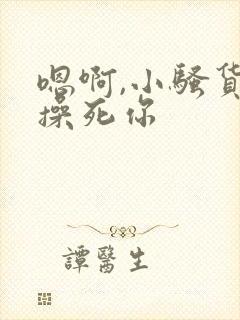 嗯啊,小骚货
操死你
譚醫生